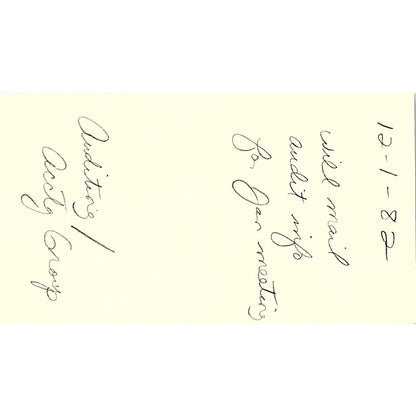 12-1-82
will mail
audit info
for Jan meeting
Auditing /
Acctg Group